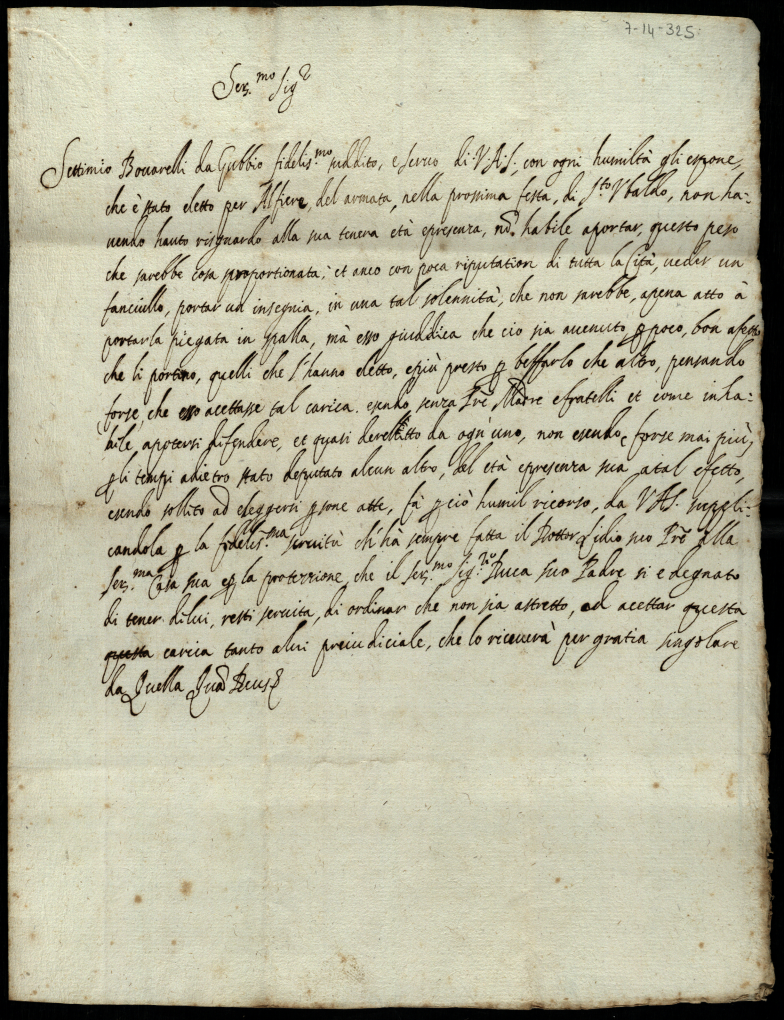 7-14-325
Ser.mo Sigr
Settimio Boccarelli da Gubbio fidelis.mo suddito, e servo di V.A.S, con ogni humiltà gli espone,
che è stato eletto per Alfiere, del armata, nella prossima festa, di S.to Ubaldo, non ha-
vendo hauto risguardo alla sua tenera età epresenza, nō habile aportar, questo peso
che sarebbe cosa sproportionata; et anco con poca riputation di tutta la Cità, veder un
fanciullo, portar un insegnia, in una tal solennità, che non sarebbe, apena atto à
portarla piegata in spalla, mà esso giudica che cio sia avenuto p poco, bon afetto
che li portino, quelli che l'hanno eletto, epiù presto p beffarlo che altro, pensando
forse, che esso acettasse tal carica. esendo, senza Prē Madre efratelli et come inha-
bile apotersi difendere, et quasi derelitto da ogn uno, non esendo, forse mai più,
p li tempi adietro stato deputato alcun altro, del età epresenza sua atal efetto,
esendo sollito ad eleggersi psone atte, fà p ciò humil ricorso, da VAS. suppli-
candola p la fidelis.ma servitù ch'hà sempre fatta il Dottor Lidio suo Prē alla
Ser.ma Casa sua e p la protezzione, che il Ser.mo Sig.re Duca suo Padre si è degnato
di tener di lui, resti servita, di ordinar che non sia astretto, ad acettar questa
questa carica tanto alui preiudiciale, che lo riceverà per gratia singolare
da Quella Quā Deus